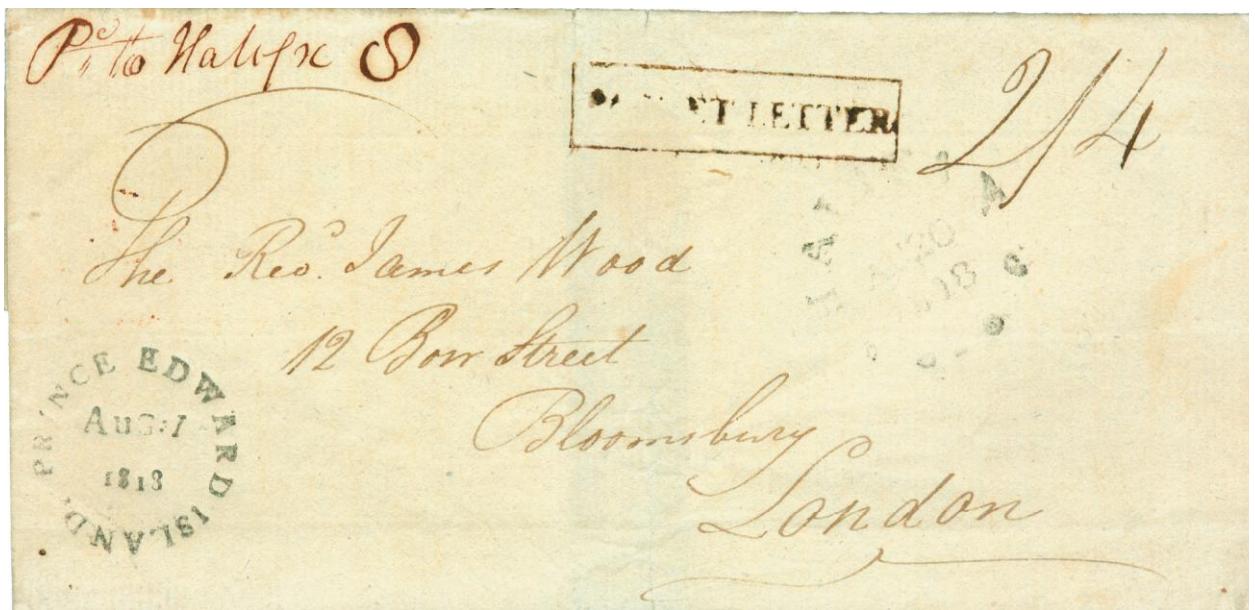 Pd to Halifx 8
ET LETTER
2/4
The Revd. James Wood
12 Bow Street
Bloomsbury
London
PRINCE EDWARD ISLAND.
1818